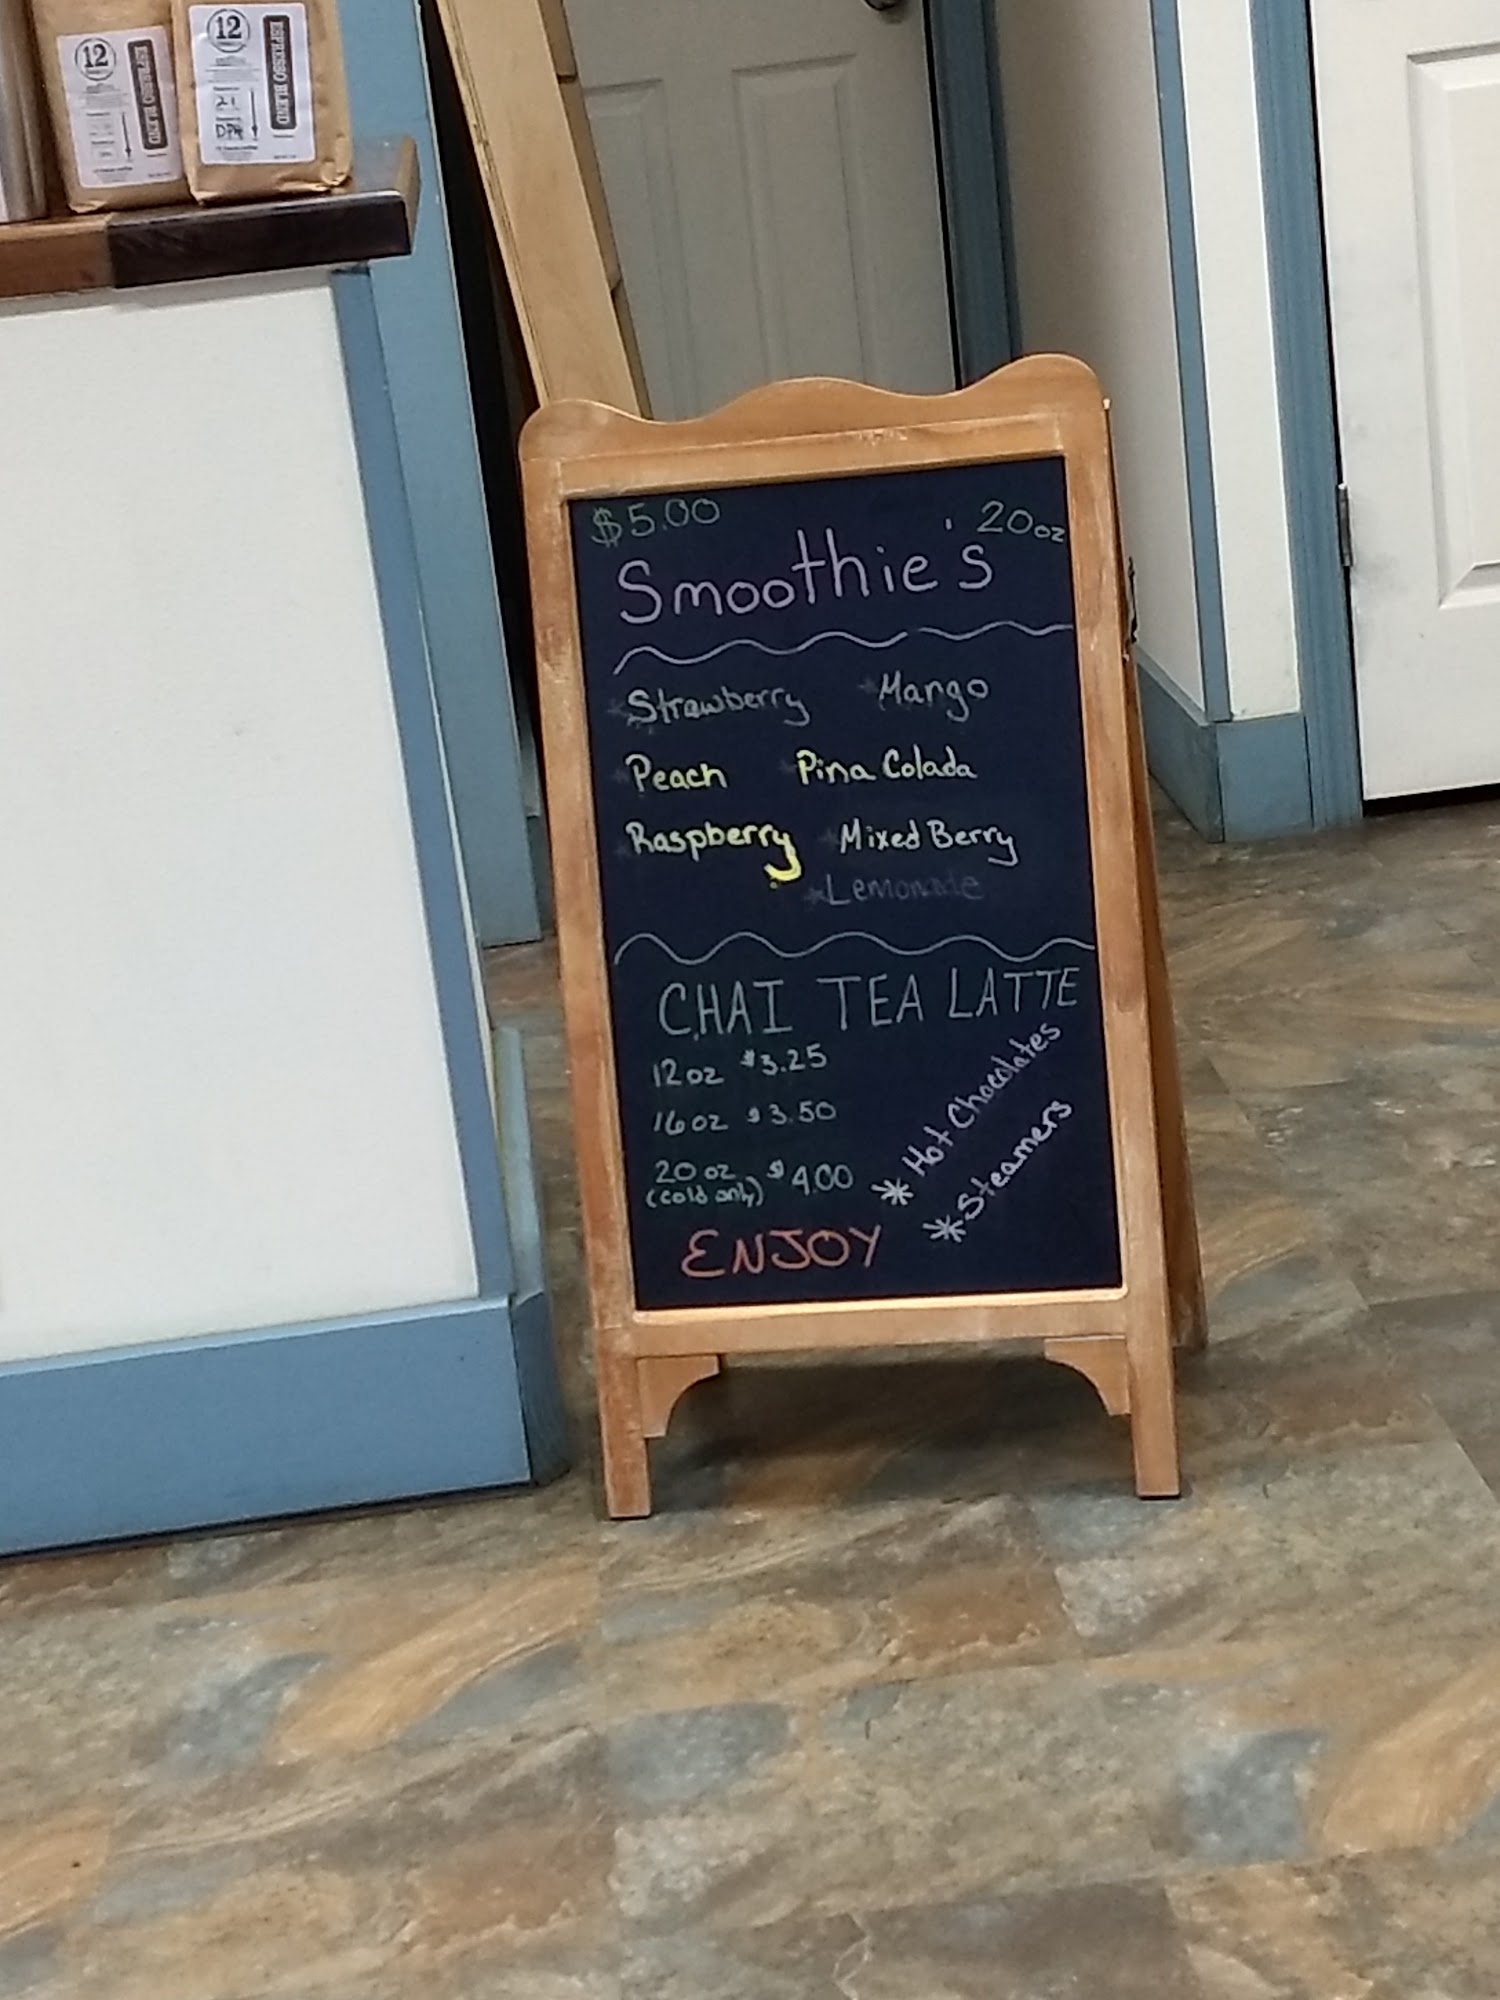 12
ESPRESSO BLEND
12
ESPRESSO BLEND
$5.00 20oz
Smoothie's
Strawberry *Mango
Peach Pina Colada
Raspberry *Mixed Berry
*Lemonade
CHAI TEA LATTE
12oz $3.25
16oz $3.50
20oz $4.00
(cold only)
* Hot Chocolates
* Steamers
ENJOY